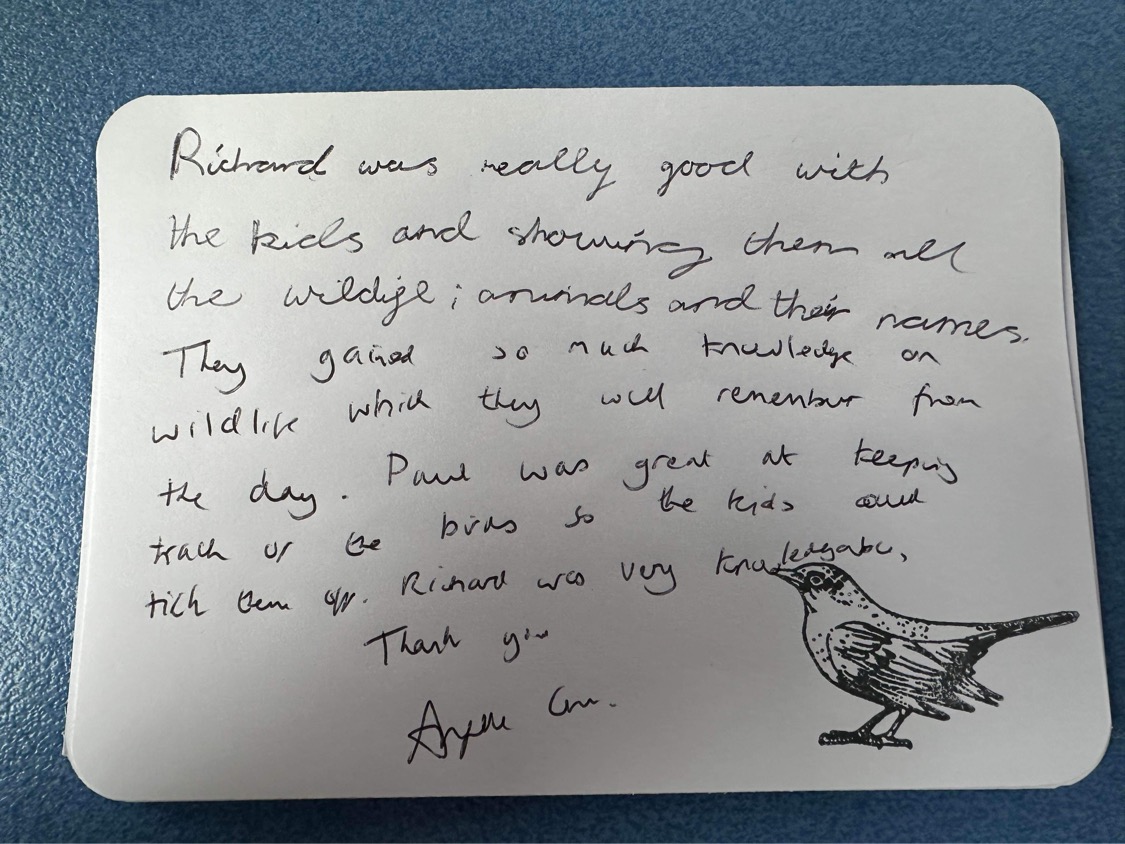 Richard was really good with
the kids and showing them all
the wildife; animals and their names.
They gained so much knowledge on
wildlife which they will remember from
the day. Paul was great at keeping
track of the birds so the kids could
tick them off. Richard was very knowledgable,
Thank you